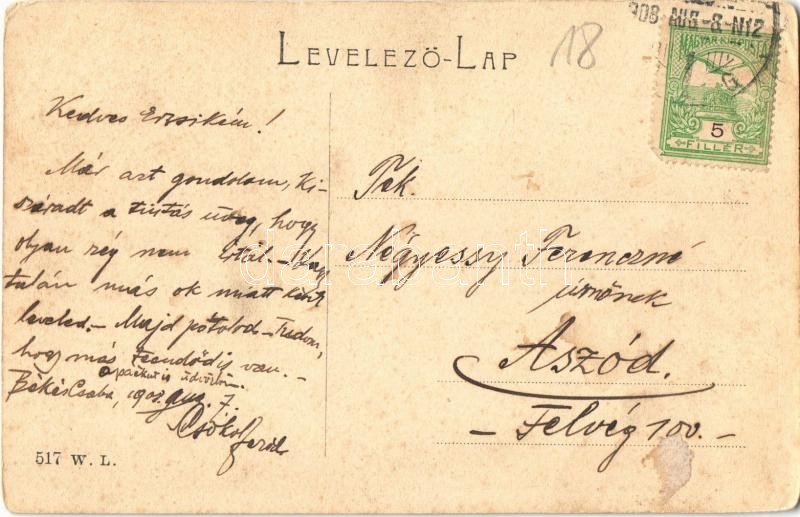 908 AUG -8 N12
18
LEVELEZŐ-LAP
MAGYAR KIR. POSTA
5
FILLÉR
Kedves Erzsikém!
Már azt gondolom, Ki-
száradt a tintás üveg, hogy
olyan rég nem írtál. - Vagy
talán más ok miatt késik
leveled. - Majd pótolod - Tudom,
hogy más teendőd is van. -
apáékat is üdvözlöm.
BékésCsaba, 1908. aug. 7.
Csókol
Tek.
Négyessy Ferenczné
úrnőnek
Aszód.
- Felvég 100. -
517 W. L.
darabanth